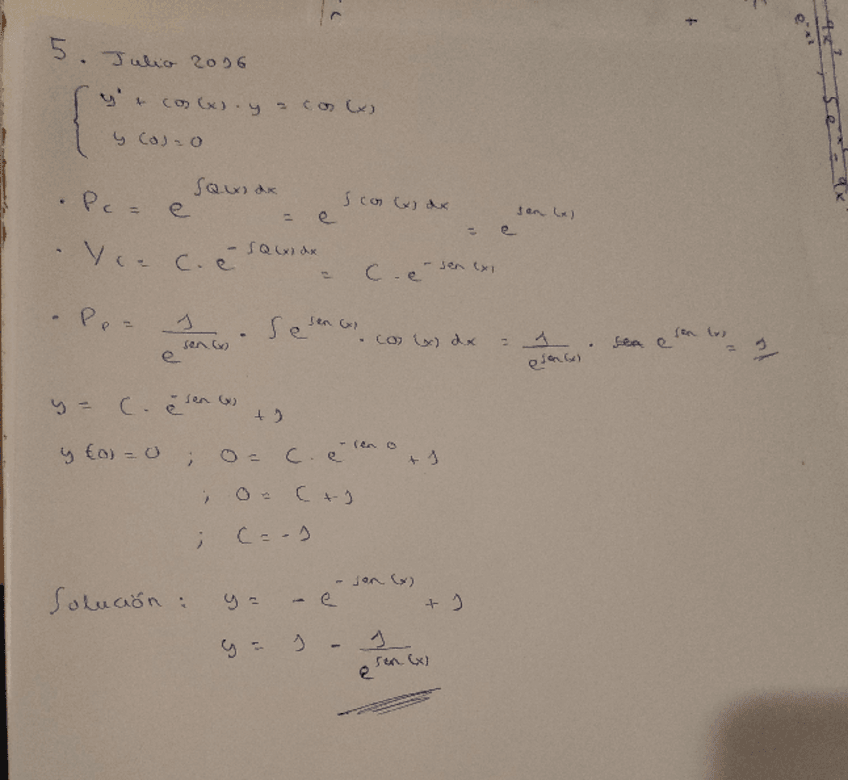 5. Julio 2016
y' + cos(x)·y = cos(x)
y(0)=0
· Pc = e^∫Q(x)dx = e^∫cos(x)dx = e^sen(x)
· Yc = C·e^-∫Q(x)dx = C·e^-sen(x)
· Pp = 1/e^sen(x) · ∫e^sen(x)·cos(x)dx = 1/e^sen(x) · e^sen(x) = 1
y = C·e^-sen(x) + 1
y(0)=0 ; 0 = C·e^-sen 0 + 1
; 0 = C+1
; C = -1
Solución: y = -e^-sen(x) + 1
y = 1 - 1/e^sen(x)